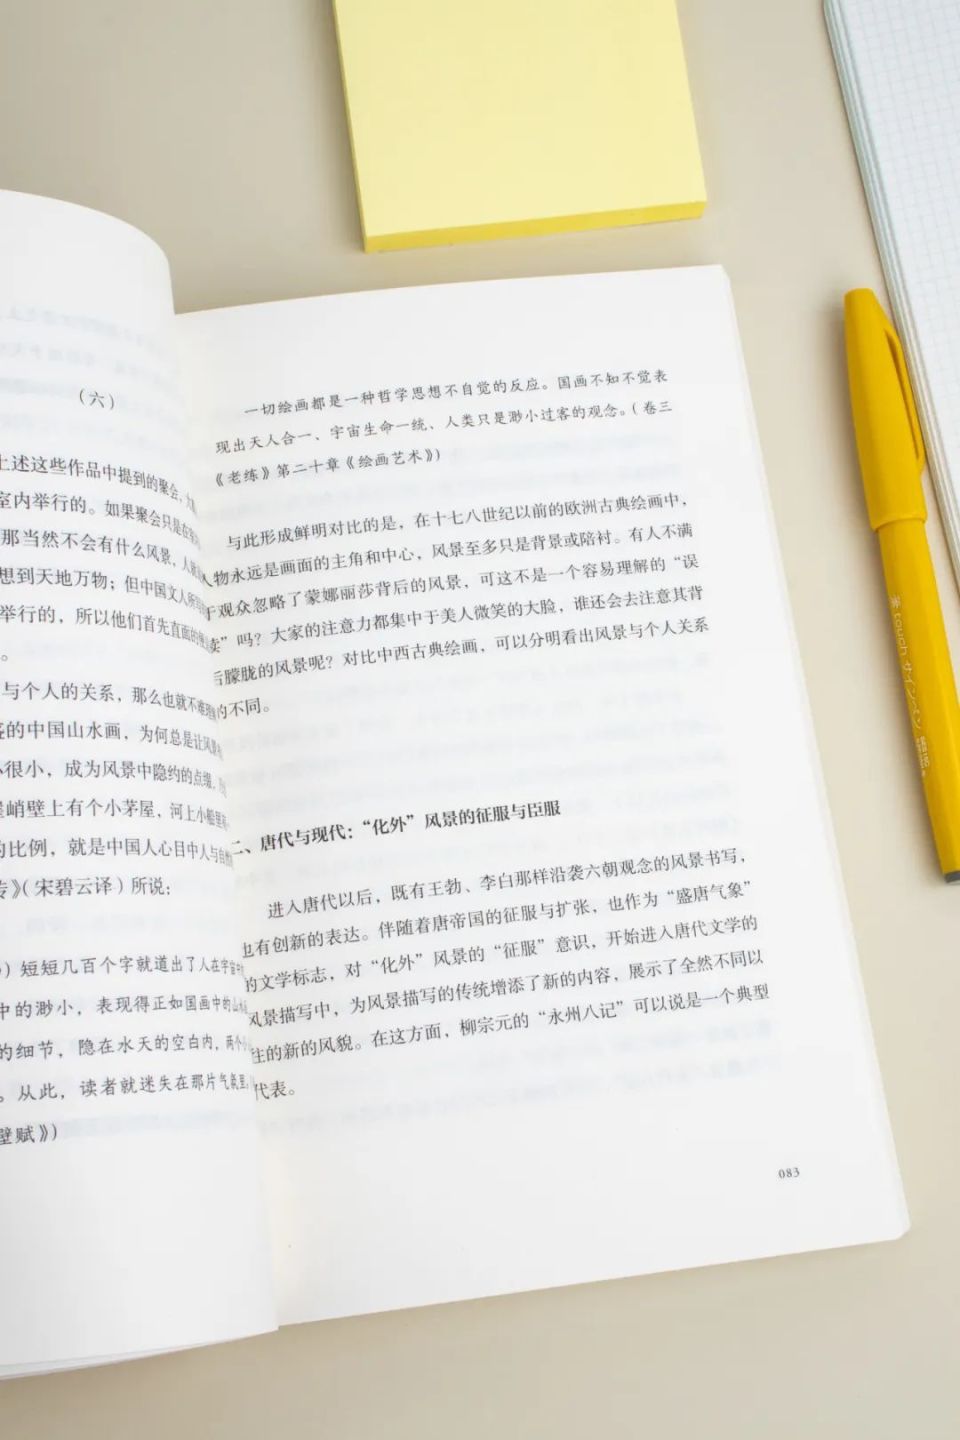 （六）
上述这些作品中提到的聚会，大
室内举行的。如果聚会只是在室内
那当然不会有什么风景，人
想到天地万物；但中国文人所
举行的，所以他们首先直面的
。
与个人的关系，那么也就不难理解
的中国山水画，为何总是让风景
小很小，成为风景中隐约的点缀，
峭壁上有个小茅屋，河上小船里
的比例，就是中国人心目中人与自
传》（宋碧云译）所说：
）短短几百个字就道出了人在宇宙中
中的渺小，表现得正如国画中的山水
的细节，隐在水天的空白内，两个小
。从此，读者就迷失在那片气氛里，
壁赋》）
一切绘画都是一种哲学思想不自觉的反应。国画不知不觉表
现出天人合一、宇宙生命一统、人类只是渺小过客的观念。（卷三
《老练》第二十章《绘画艺术》）
与此形成鲜明对比的是，在十七八世纪以前的欧洲古典绘画中，
人物永远是画面的主角和中心，风景至多只是背景或陪衬。有人不满
于观众忽略了蒙娜丽莎背后的风景，可这不是一个容易理解的“误
读”吗？大家的注意力都集中于美人微笑的大脸，谁还会去注意其背
后朦胧的风景呢？对比中西古典绘画，可以分明看出风景与个人关系
的不同。
二、唐代与现代：“化外”风景的征服与臣服
进入唐代以后，既有王勃、李白那样沿袭六朝观念的风景书写，
也有创新的表达。伴随着唐帝国的征服与扩张，也作为“盛唐气象”
的文学标志，对“化外”风景的“征服”意识，开始进入唐代文学的
风景描写中，为风景描写的传统增添了新的内容，展示了全然不同以
往的新的风貌。在这方面，柳宗元的“永州八记”可以说是一个典型
代表。
083
touch サインペン